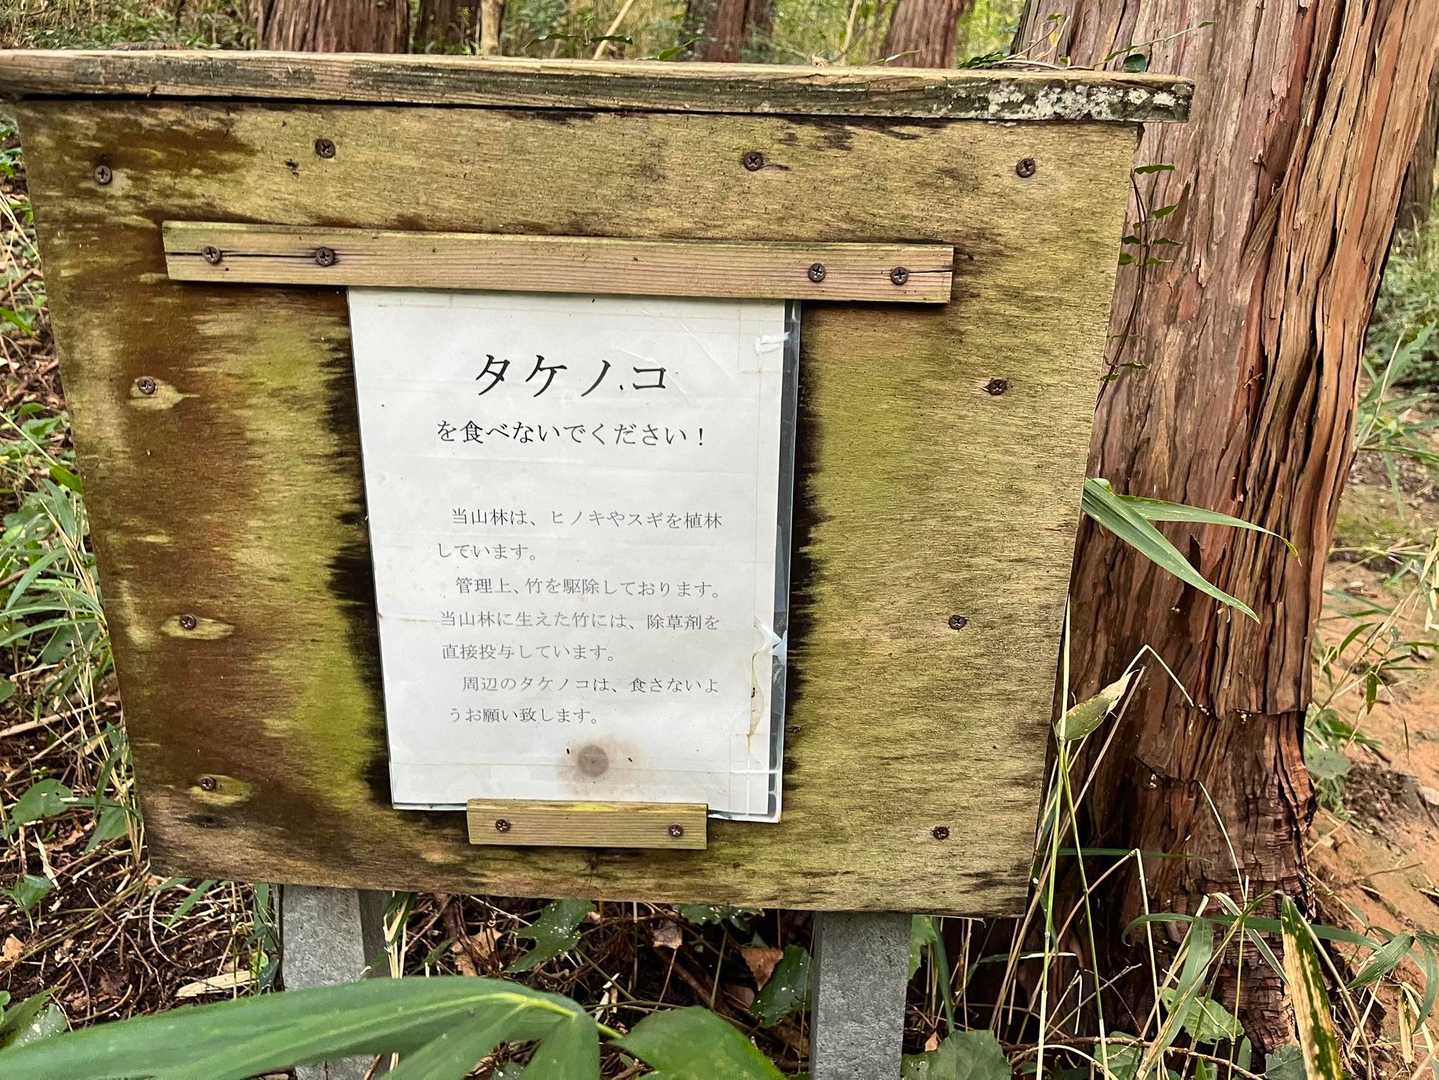 タケノコ
を食べないでください！
当山林は、ヒノキやスギを植林
しています。
管理上、竹を駆除しております。
当山林に生えた竹には、除草剤を
直接投与しています。
周辺のタケノコは、食さないよ
うお願い致します。